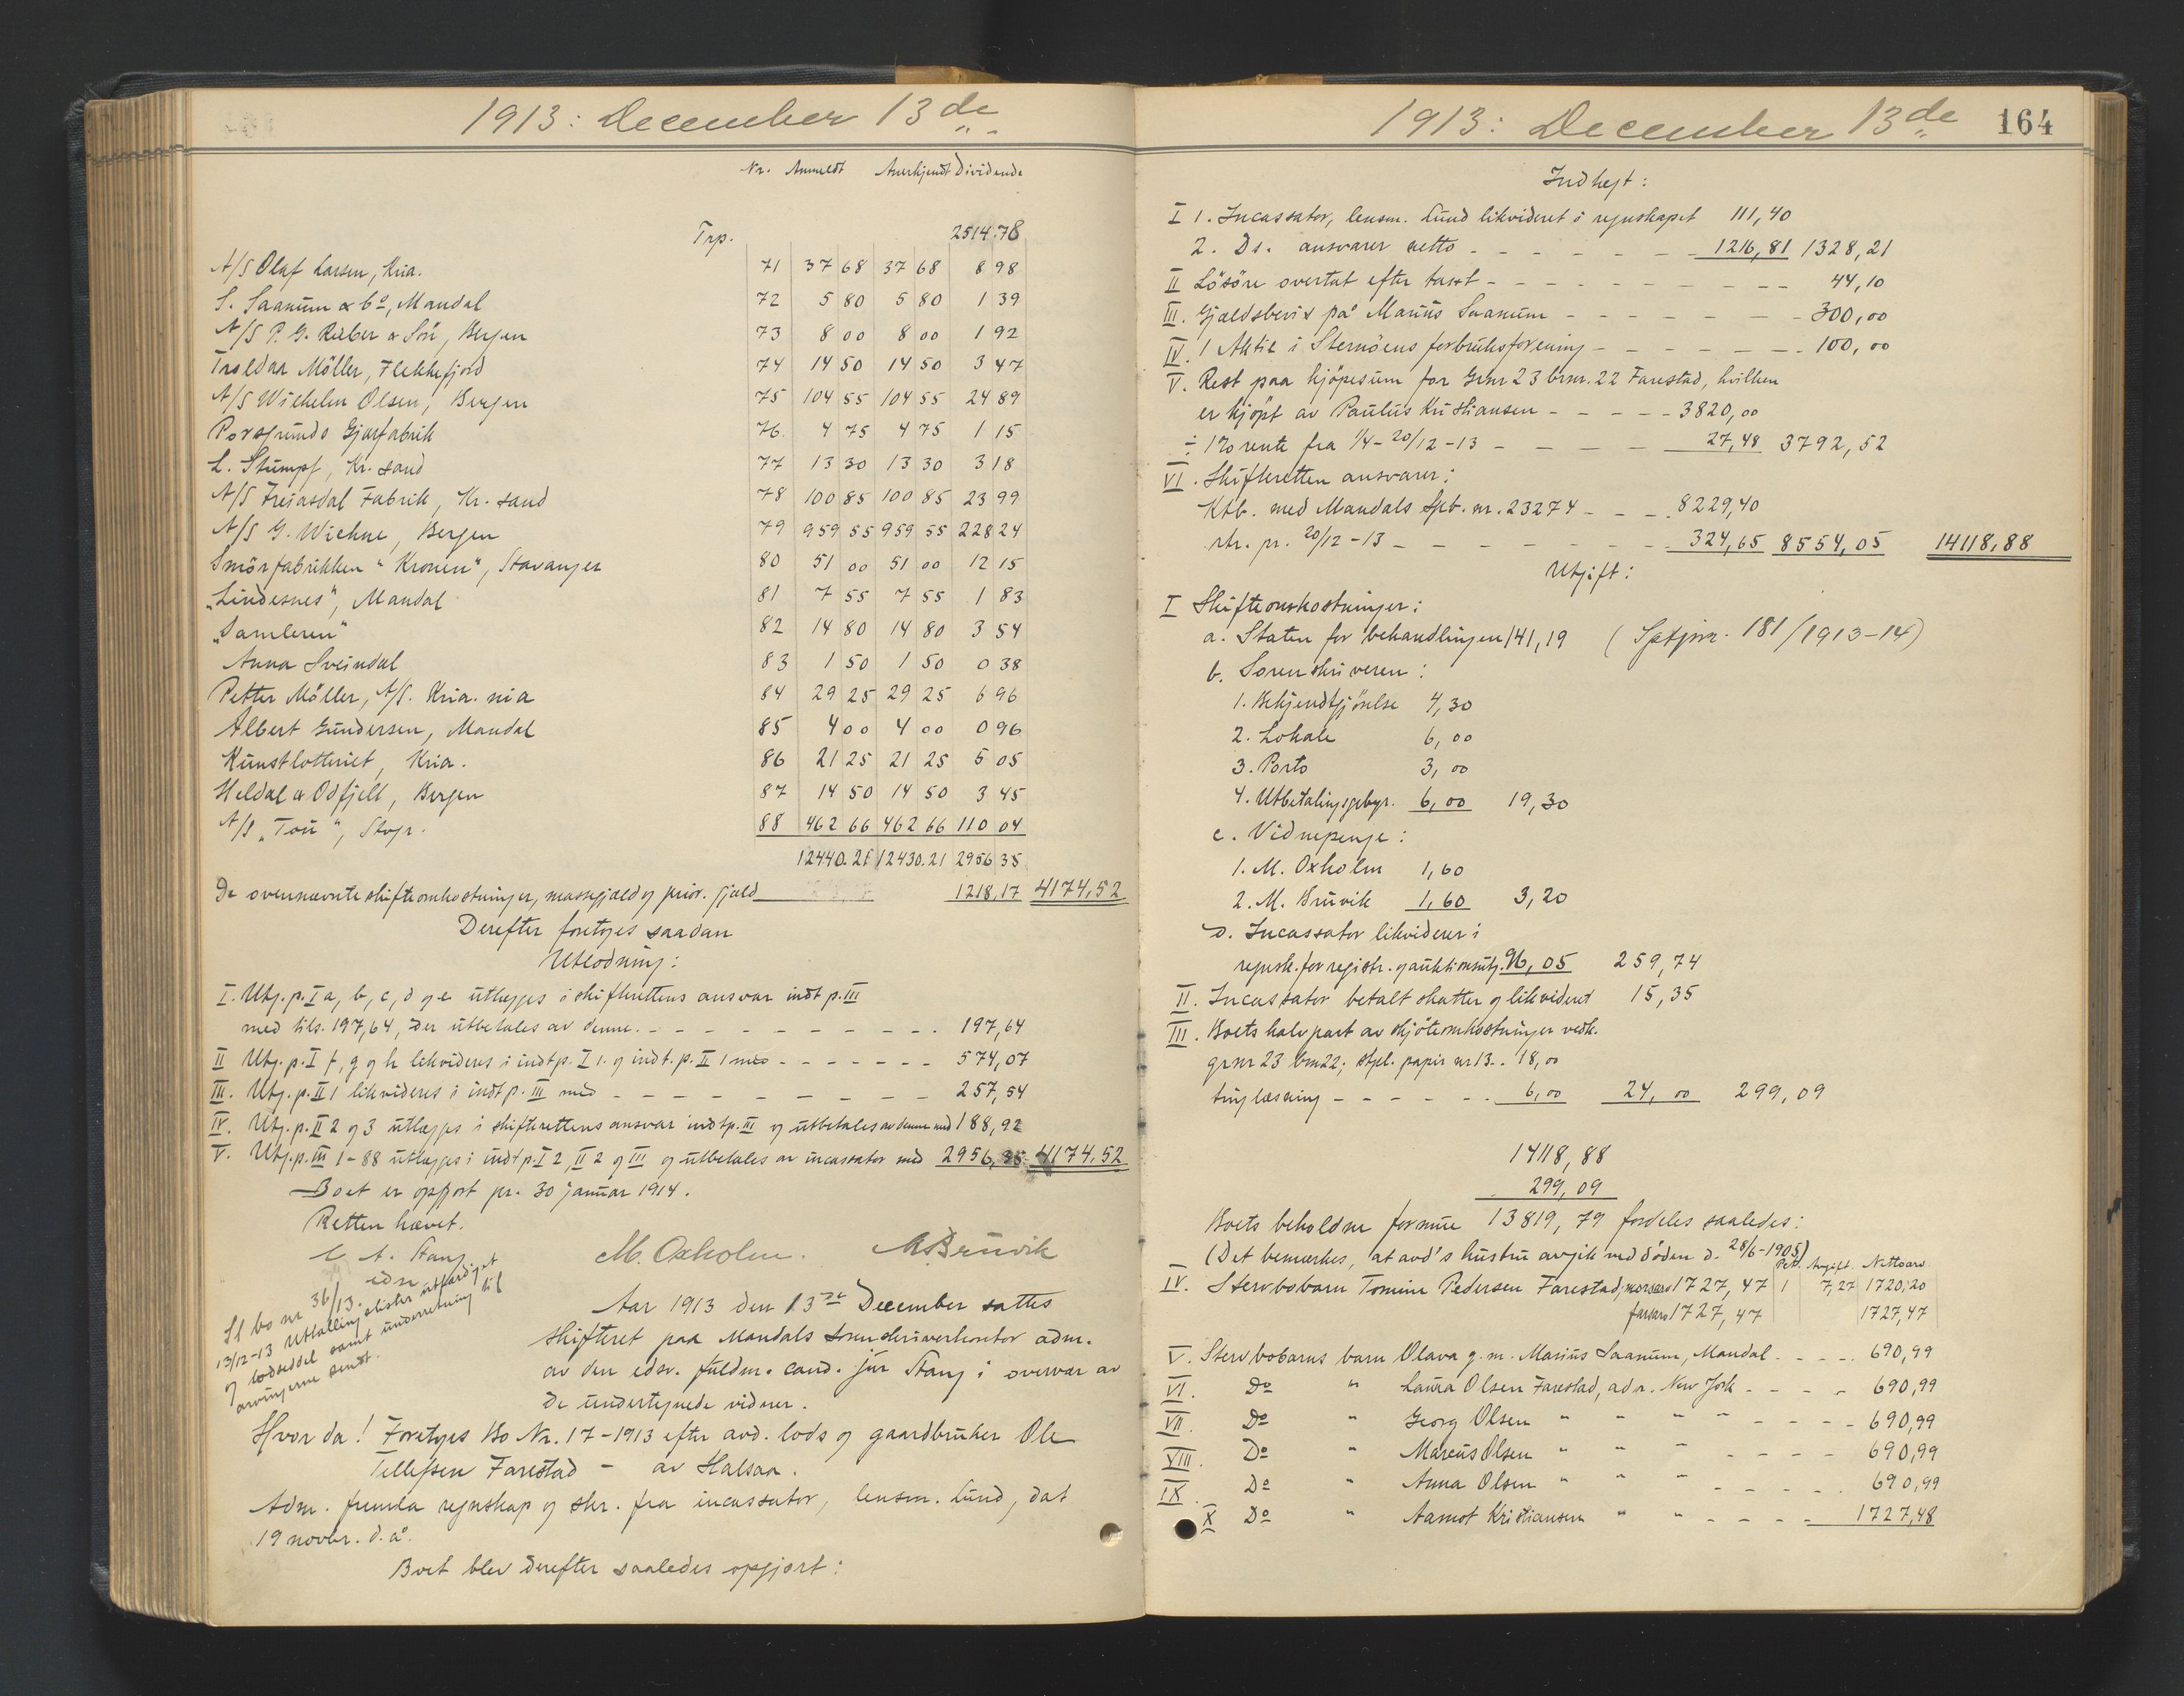 1913: December 13de
Nr. Anmeldt Anerkjendt Dividende
Trp. 2514.78
A/S Olaf Larsen, Kria. 71 37 68 37 68 8 98
S. Saanum & Co, Mandal 72 5 80 5 80 1 39
A/S P. G. Rieber & Sön, Bergen 73 8 00 8 00 1 92
Troldar Möller, Flekkefjord 74 14 50 14 50 3 47
A/S Wilhelm Olsen, Bergen 75 104 55 104 55 24 89
Porsgrunds Gjærfabrik 76 4 75 4 75 1 15
L. Stumpf, Kr. sand 77 13 30 13 30 3 18
A/S Freiasdal Fabrik, Kr. sand 78 100 85 100 85 23 99
A/S G. Wiehne, Bergen 79 959 55 959 55 228 24
Smörfabrikken "Kronen", Stavanger 80 51 00 51 00 12 15
"Lindesnes", Mandal 81 7 55 7 55 1 83
"Samleren" 82 14 80 14 80 3 54
Anna Sveindal 83 1 50 1 50 0 38
Petter Möller, A/S. Kria. nia 84 29 25 29 25 6 96
Albert Gundersen, Mandal 85 4 00 4 00 0 96
Kunstlotteriet, Kria. 86 21 25 21 25 5 05
Heldal & Odfjell, Bergen 87 14 50 14 50 3 45
A/S "Tou", Stvgr. 88 462 66 462 66 110 04
12440.21 12430.21 2956 35
De ovennævnte skifteomkostninger, massegjæld og prior. gjæld 1218,17 4174,52
Derefter foretoges saadan
Utlodning:
I. Utg. p. I a, b, c, d og e utlægges i skifterettens ansvar indt p. III
med tils. 197,64, der utbetales av denne. - - - 197,64
II Utg. p. I f, g og h likvideres i indt p. I 1. og indt. p. II 1 med - - - 574,07
III. Utg. p. II 1 likvideres i indt p. III med - - - 257,54
IV. Utg. p. II 2 og 3 utlægges i skifterettens ansvar indt p. III og utbetales av denne med 188,92
V. Utg. p. III 1-88 utlægges i indt p. I 2, II 2 og III og utbetales av incassator med 2956,35 4174.52
Boet er opgjort pr. 30 januar 1914.
Retten hævet.
C. A. Stang M. Oxholm. M. Bruvik
edsv.
Sl bo nr 36/13.
13/12-13 Utlællingslister utfærdiget
og lodseddel samt underretning til
arvingerne sendt.
Aar 1913 den 13de December sattes
skifteret paa Mandals sorenskriverkontor adm.
av den edsv. fuldm. cand. jur Stang i overvær av
de undertegnede vidner.
Hvor da! Foretoges Bo Nr. 17-1913 efter avd. lods og gaardbruker Ole
Tellefsen Farestad - av Halsaa.
Adm. fremla regnskap og skr. fra incassator, lensm. Lund, dat
19 novbr. d. å.
Boet blev derefter saaledes opgjort:
1913: December 13de 164
Indtægt:
I 1. Incassator, lensm. Lund likvideret i regnskapet 111,40
2. Ds. ansvarer netto - - - 1216,81 1328,21
II Lösöre overtat efter taxt - - - 44,10
III. Gjældsbevis på Marius Saanum - - - 300,00
IV. 1 Aktie i Sternöens forbruksforening - - - 100,00
V. Rest paa kjöpesum for Grnr 23 brnr. 22 Farestad, hvilken
er kjöpt av Paulus Kristiansen - - - 3820,00
÷ 1% rente fra 1/4 - 20/12 - 13 - - - 27,48 3792,52
VI. Skifteretten ansvarer:
Ktb. med Mandals Spb. nr. 23274 - - - 8229,40
rtr. pr. 20/12 - 13 - - - 324,65 8554,05 14118,88
Utgift:
I Skifteomkostninger:
a. Staten for behandlingen 141,19 (Sptjnr. 181/1913-14)
b. Sorenskriveren:
1. Bekjendtgjörelse 4,30
2. Lokale 6,00
3. Porto 3,00
4. Utbetalingsgebyr. 6,00 19,30
c. Vidnepenge:
1. M. Oxholm 1,60
2. M. Bruvik 1,60 3,20
d. Incassator likviderer i
regnsk. for registr. og auktionsutg. 96,05 259,74
II. Incassator betalt skatter og likvideret 15,35
III. Boets halvpart av skjöteomkostninger vedk.
grnr 23 brn 22; stpl. papir nr 13.. 18,00
tinglæsning - - - 6,00 24,00 299,09
14118,88
299,09
Boets beholdne formue 13819,79 fordeles saaledes:
(Det bemærkes, at avd's hustru avgik ved döden d. 28/6-1905)
Pct. Avgift. Nettoarv
IV. Stervbobarn Tomine Pedersen Farestad, morsarv 1727,47 1 7,27 1720,20
farsarv 1727,47 1727,47
V. Stervbobarns barn Olava g. m. Marius Saanum, Mandal - - - 690,99
VI. Do " Laura Olsen Farestad, adr. New York - - - 690,99
VII. Do " Georg Olsen " " " - - - 690,99
VIII. Do " Marcus Olsen " " " - - - 690,99
IX. Do " Anna Olsen " " " - - - 690,99
X Do " Aamot Kristiansen " " - - - 1727,48